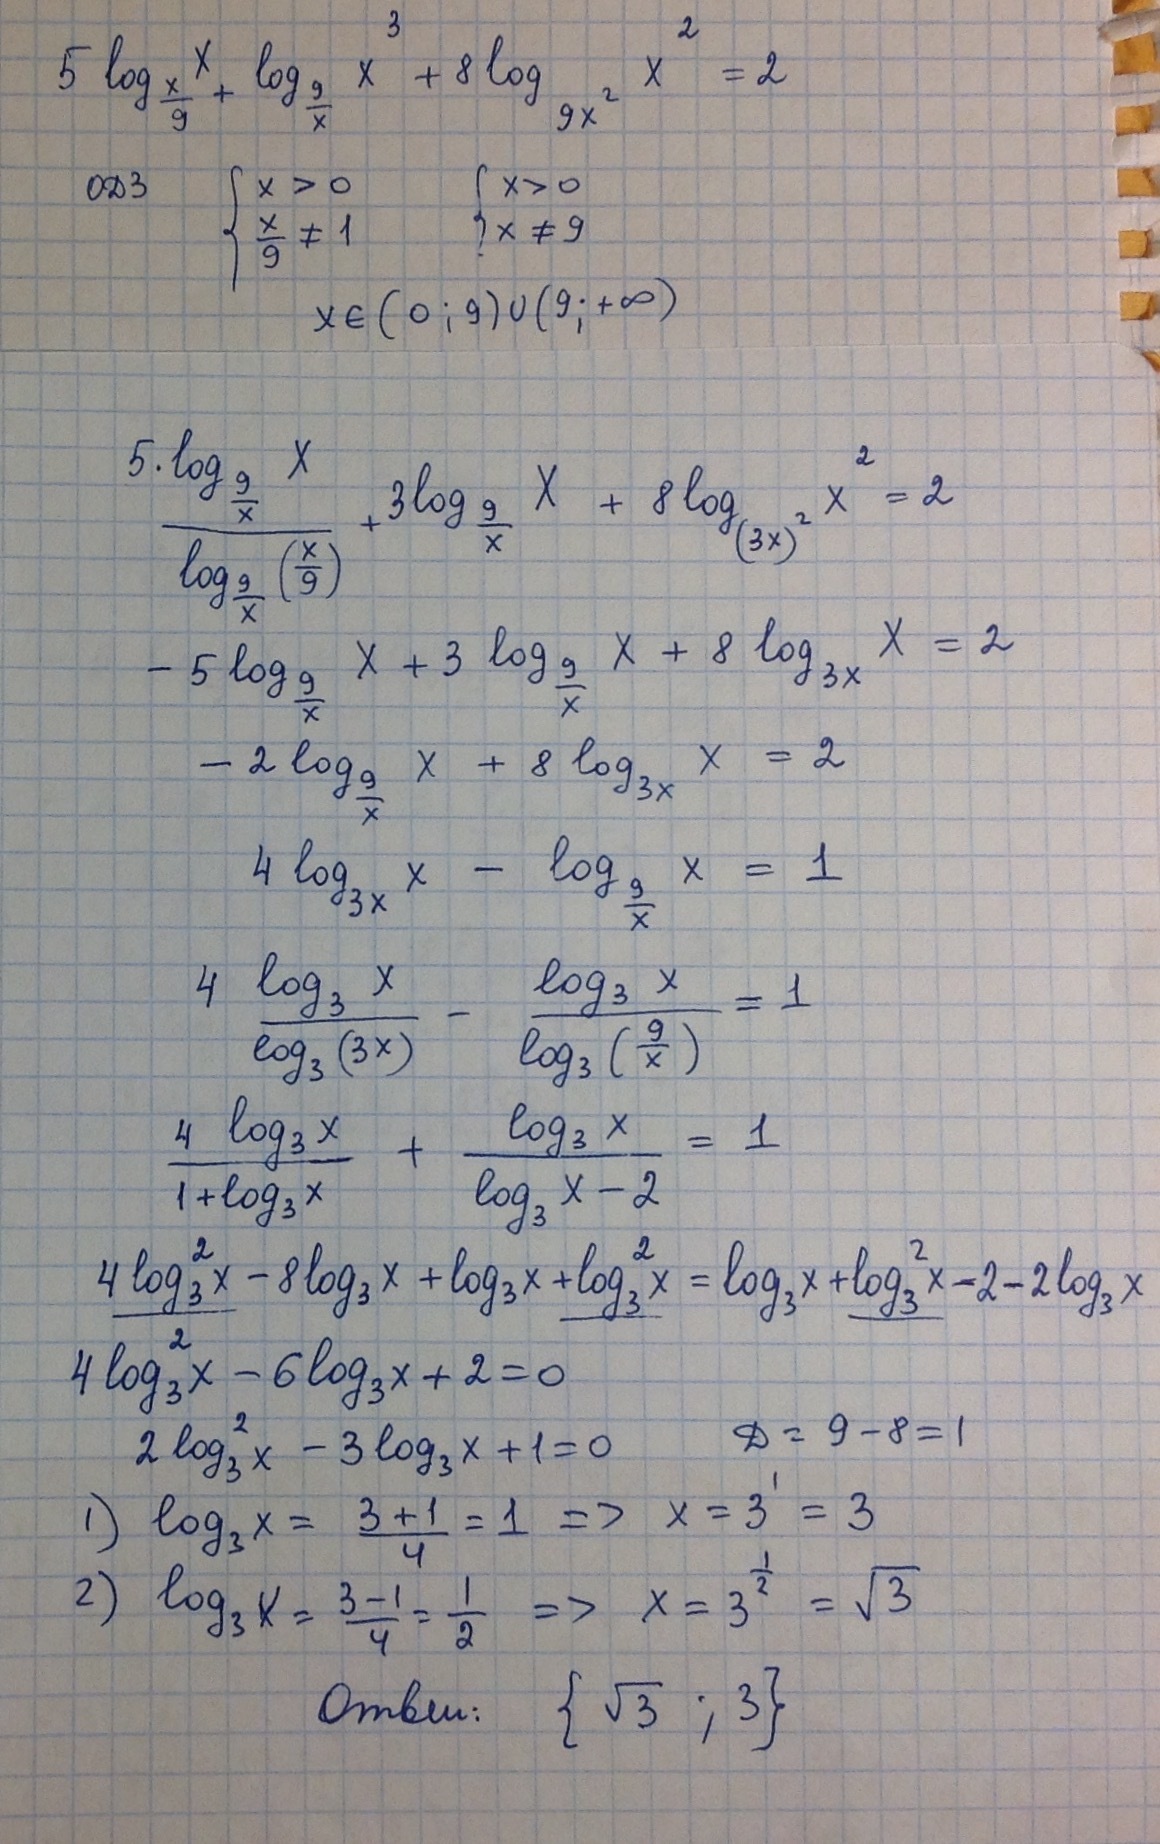 5 log_{x/9} x + log_{9/x} x^3 + 8 log_{9x^2} x^2 = 2
ОДЗ { x > 0 { x > 0
x/9 ≠ 1 x ≠ 9
x ∈ (0; 9) ∪ (9; +∞)
5·log_{9/x} x / log_{9/x} (x/9) + 3 log_{9/x} x + 8 log_{(3x)^2} x^2 = 2
- 5 log_{9/x} x + 3 log_{9/x} x + 8 log_{3x} x = 2
- 2 log_{9/x} x + 8 log_{3x} x = 2
4 log_{3x} x - log_{9/x} x = 1
4 log_3 x / log_3 (3x) - log_3 x / log_3 (9/x) = 1
4 log_3 x / (1 + log_3 x) + log_3 x / (log_3 x - 2) = 1
4 log_3^2 x - 8 log_3 x + log_3 x + log_3^2 x = log_3 x + log_3^2 x - 2 - 2 log_3 x
4 log_3^2 x - 6 log_3 x + 2 = 0
2 log_3^2 x - 3 log_3 x + 1 = 0 D = 9 - 8 = 1
1) log_3 x = (3 + 1)/4 = 1 => x = 3^1 = 3
2) log_3 x = (3 - 1)/4 = 1/2 => x = 3^{1/2} = √3
Ответ: {√3 ; 3}